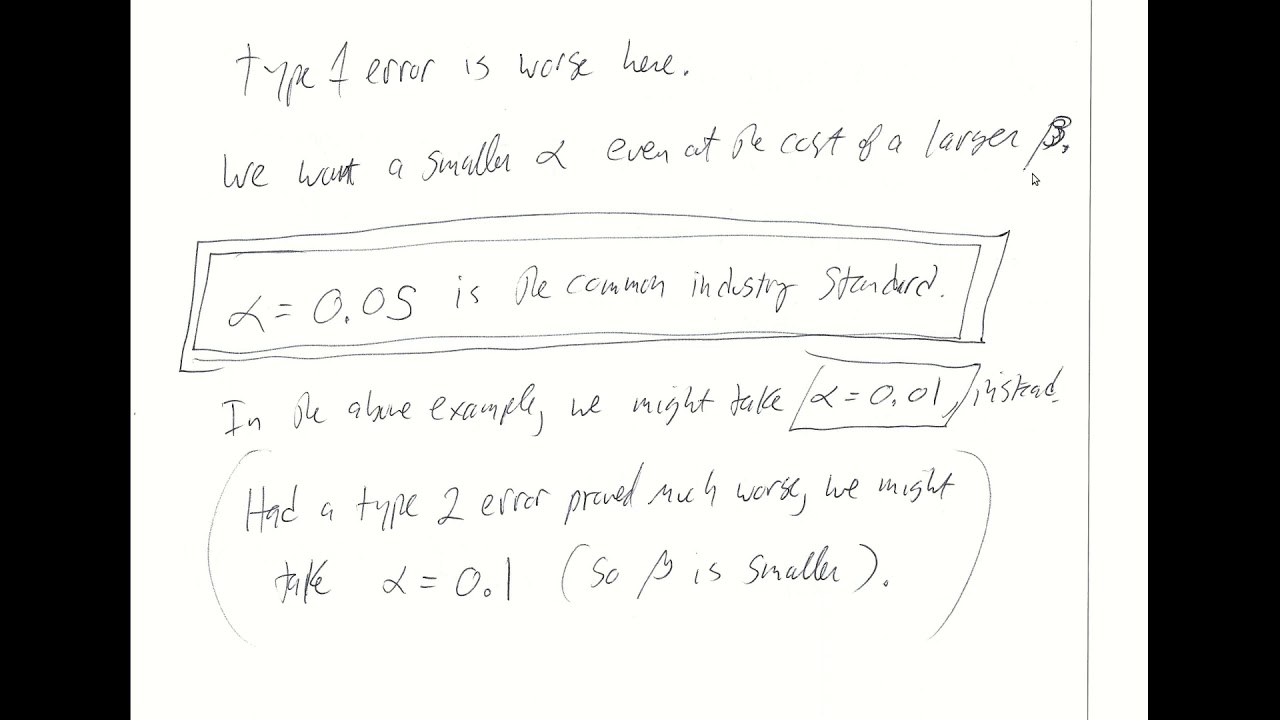 type 1 error is worse here.
We want a smaller α even at the cost of a larger β.
α = 0.05 is the common industry standard.
In the above example, we might take α = 0.01 instead.
(Had a type 2 error proved much worse, we might
take α = 0.1 (so β is smaller).)